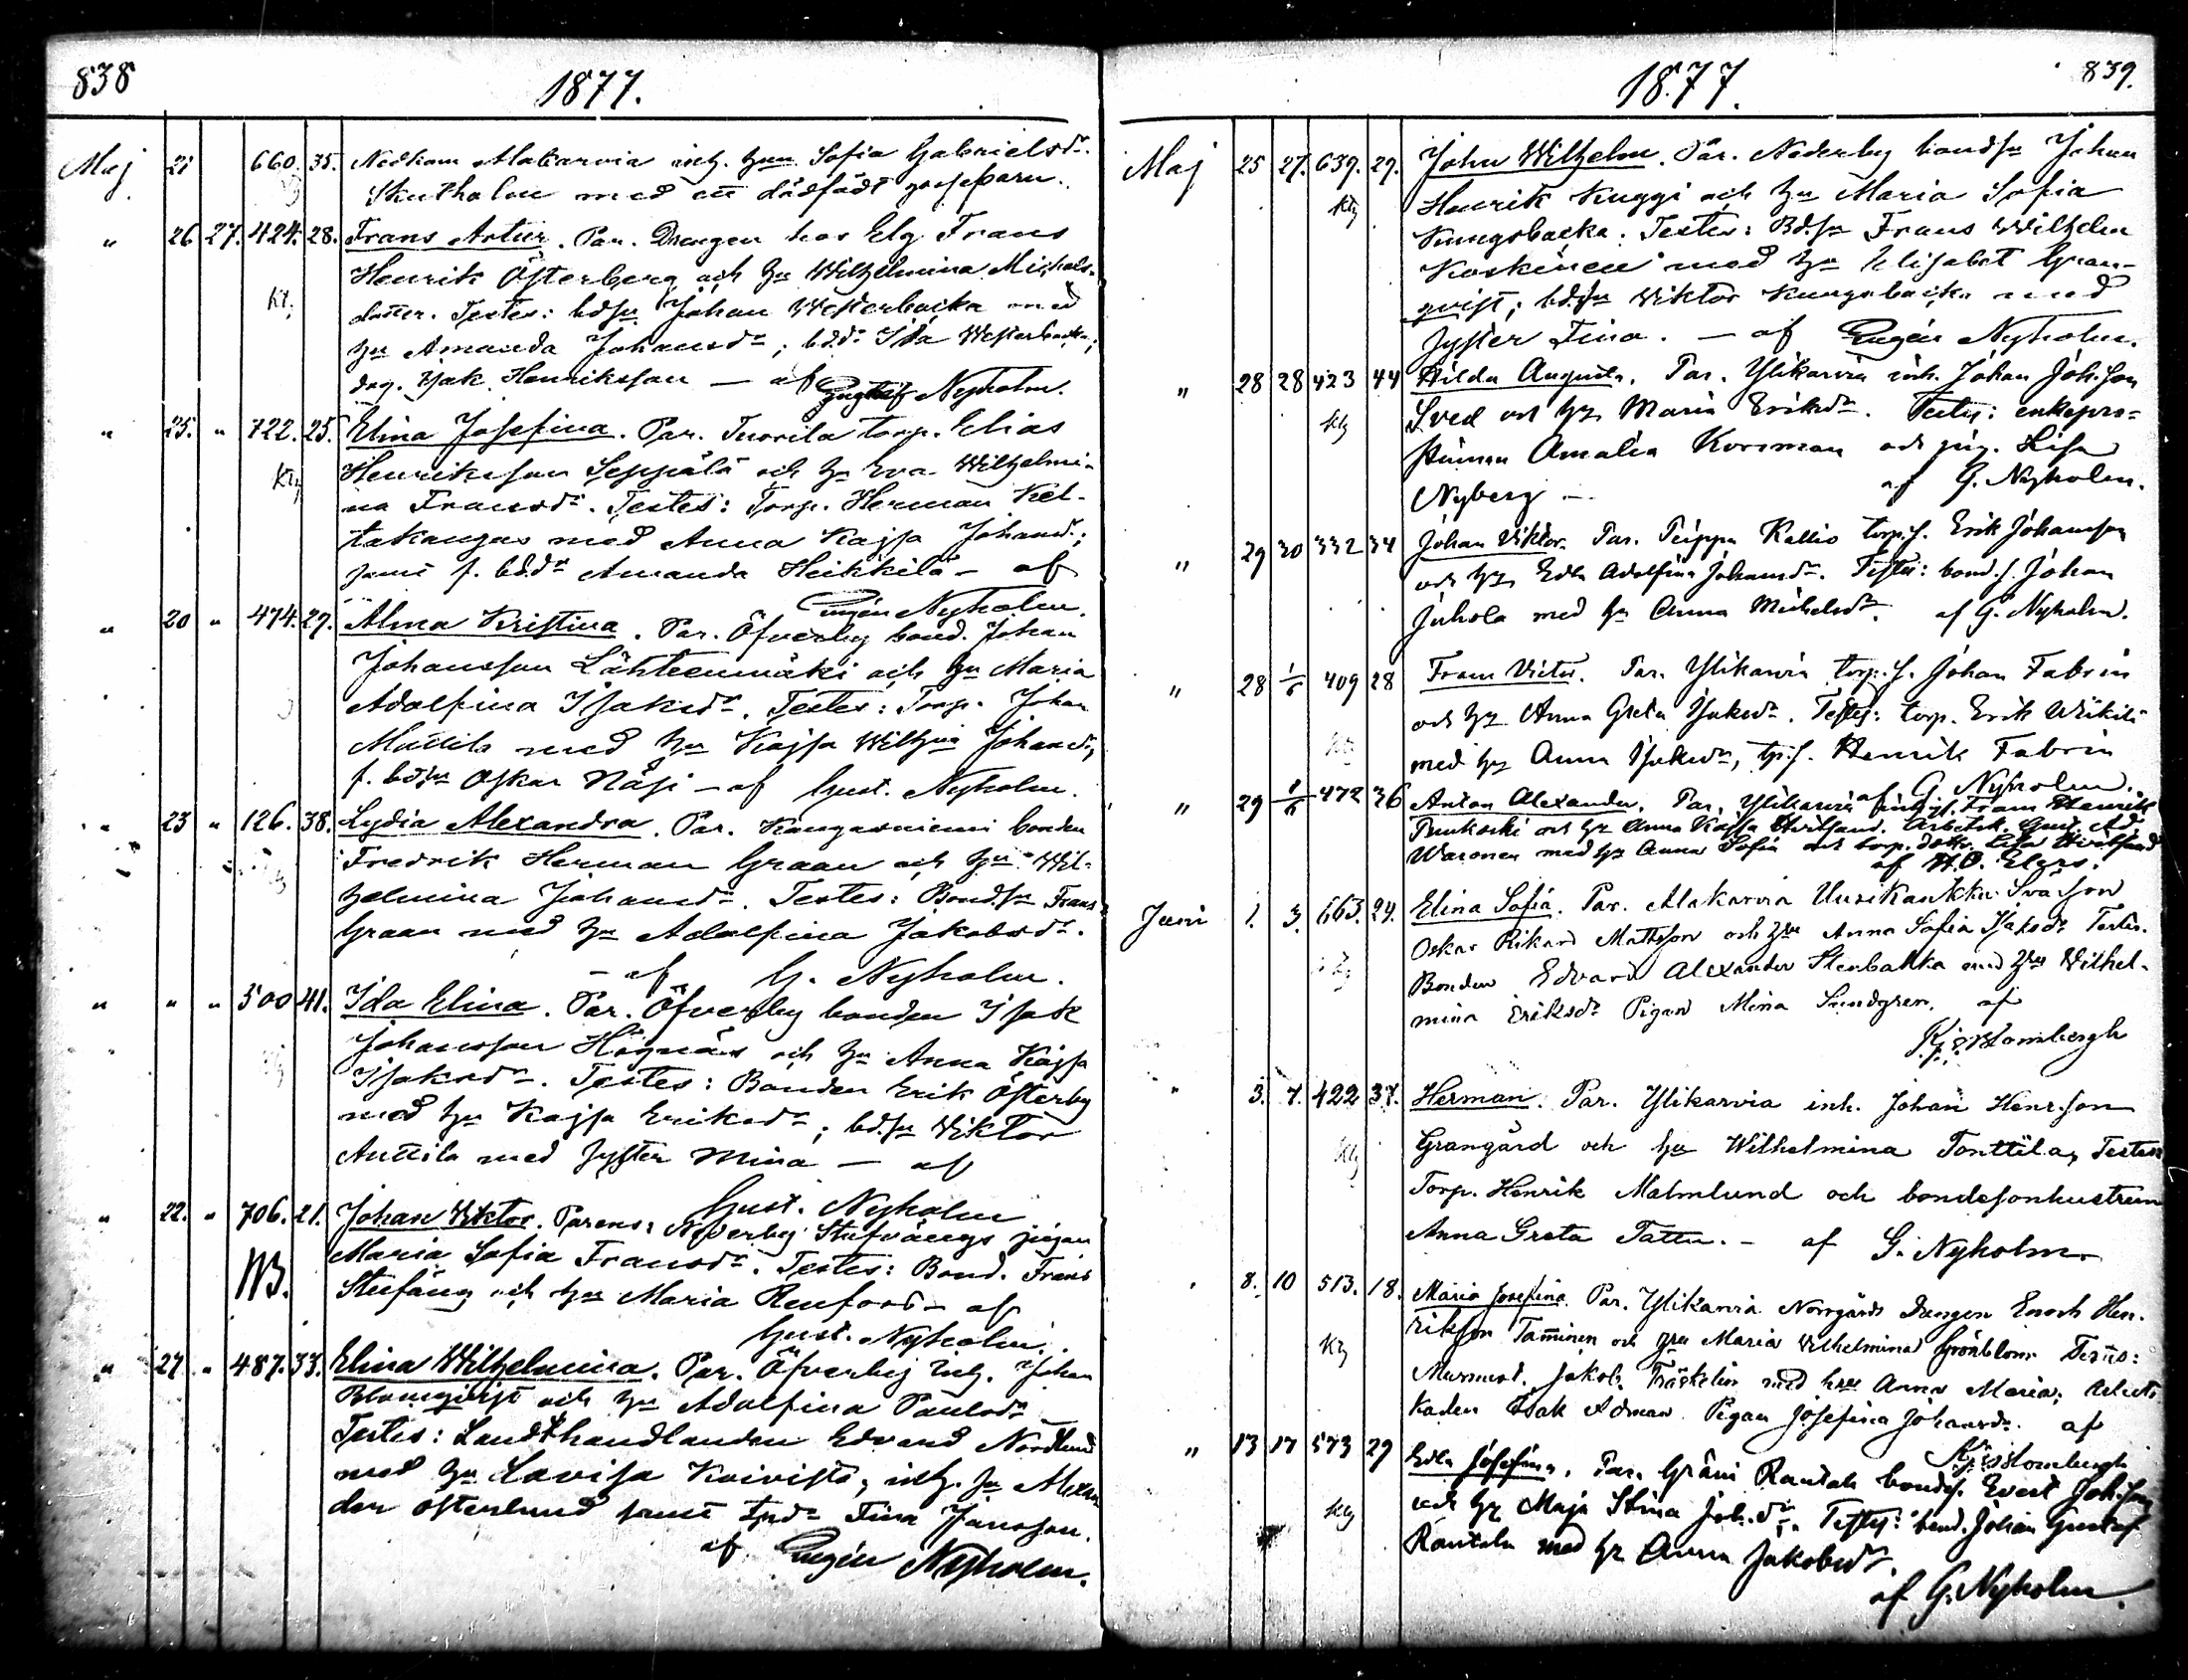 838
1877.
Maj 21 660. 35. Nedkom Alakarvia inh. hu Sofia Gabrielsdr.
Skutholm med ett dödfödt gossebarn.
" 26 27. 424. 28. Frans Artur. Par. Drengen hos Elg Frans
Henrik Österberg och hu Wilhelmina Michels-
dotter. Testes: bdsn Johan Westerbacka med
hu Amanda Johansdr; bdd. Ida Westerbacka;
drg. Isak Henriksson — af Gustaf Nyholm.
" 25. " 722. 25. Elina Josefina. Par. Tuorila torp. Elias
Henriksson Seppälä och hu Eva Wilhelmi-
na Fransdr. Testes: Torp. Herman Kel-
takangas med Anna Kajsa Johansd.;
samt f. bddr Amanda Heikkilä — af
Eugén Nyholm.
" 20 " 474. 29. Alma Kristina. Par. Öfverby bond. Johan
Johansson Lähteenmäki och hu Maria
Adolfina Isaksdr. Testes: Torp. Johan
Mattila med hu Kajsa Wilhna Johansd.,
f. bdsn Oskar Näsi — af Gust. Nyholm.
" 23 " 126. 38. Lydia Alexandra. Par. Kangasniemi bonden
Fredrik Herman Graan och hu Wil-
helmina Johansdr. Testes: Bondsn Frans
Graan med hu Adolfina Jakobsdr.
— af G. Nyholm.
" " " 500 41. Ida Elina. Par. Öfverby bonden Isak
Johansson Högnäs och hu Anna Kajsa
Isaksdr. Testes: Bonden Erik Österby
med hu Kajsa Eriksdr; bdsn Viktor
Anttila med syster Mina — af
Gust. Nyholm
" 22. " 706. 21. Johan Viktor. Parens: Nederby Stufvängs pigan
NB. Maria Sofia Fransdr. Testes: Bond. Frans
Stufäng och hu Maria Renfors — af
Gust. Nyholm.
" 27. " 487. 33. Elina Wilhelmina. Par. Öfverby inh. Johan
Blomqvist och hu Adolfina Paulsdr
Testes: Landthandlanden Edvard Nordlund
med hu Lovisa Koivisto, inh. sn Alexan
der Österlund samt tpdr Fina Jansson.
af Eugén Nyholm.
839.
1877.
Maj 25 27. 639. 29. John Wilhelm. Par. Nederby bondsn Johan
Henrik Kuggi och hu Maria Sofia
Kungsbacka. Testes: Bdsn Frans Wilhelm
Koskinen med hu Elisabet Gran-
qvist; bdsn Viktor Kungsbacka med
syster Fina. — af Eugén Nyholm.
" 28 28 423 44 Hilda Augusta. Par. Ylikarvia inh. Johan Joh.son
Sved och hu Maria Eriksdr. Testes: enkepro-
stinnan Amalia Korsman och pig. Lisa
Nyberg — af G. Nyholm.
" 29 30 332 34 Johan Viktor. Par. Peippu Kallio torp.s. Erik Johansson
och hu Edla Adolfina Johansdr. Testes: bond.s. Johan
Juhola med hu Anna Michelsdr. af G. Nyholm.
" 28 1/6 409 28 Frans Victor. Par. Ylikarvia torp.s. Johan Fabrin
och hu Anna Greta Isaksdr. Testes: torp. Erik Wäkiti
med hu Anna Isaksdr, tp.s. Henrik Fabrin
af G. Nyholm.
" 29 1/6 472 36 Anton Alexander. Par. Ylikarvia Frans Henrik
och hu Anna Kajsa Hvitsand. Arbetsk. Gust. Ad.
Waronen med hu Anna Sofia och torp. dottr. Lisa Hvitsand
af H. O. Elgs.
Juni 1. 3. 663. 24. Elina Sofia. Par. Alakarvia Uusikankku Svärson
Oskar Rikard Mattsson och hu Anna Sofia Isaksdr Testes.
Bonden Edvard Alexander Stenbakka med hu Wilhel-
mina Eriksdr Pigan Mina Sundgren. af
Blombergh
" 3. 7. 422 37. Herman. Par. Ylikarvia inh. Johan Henr.son
Grangård och hu Wilhelmina Tonttila, Testes
Torp. Henrik Malmlund och bondesonhustrun
Anna Greta Tattu. — af G. Nyholm.
" 8. 10 513. 18. Maria Josefina Par. Ylikarvia Norrgårds Drengen Enoch Hen-
rikson Tamminen och hu Maria Wilhelmina Grönblom Testes:
Murmest. Jakob Träskelin med hu Anna Maria; Arbets
karlen Isak Adman Pigan Josefina Johansdr. af
Blombergh
" 13 17 573 29 Edla Josefina. Par. Gräni Rantala bonds. Evert Joh.son
och hu Maja Stina Joh.dr. Testes: bond. Johan Gustaf
Rantala med hu Anna Jakobsdr.
af G. Nyholm.